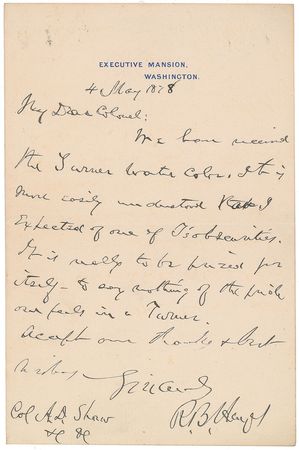 EXECUTIVE MANSION,
WASHINGTON.
4 May 1878
My Dear Colonel:
We have received
the Turner Water Color. It is
more easily understood than I
expected of one of T's obscurities.
It is really to be prized for
itself - to say nothing of the pride
one feels in a Turner.
Accept our thanks & best
wishes
Sincerely
R.B. Hayes
Col A.D. Shaw